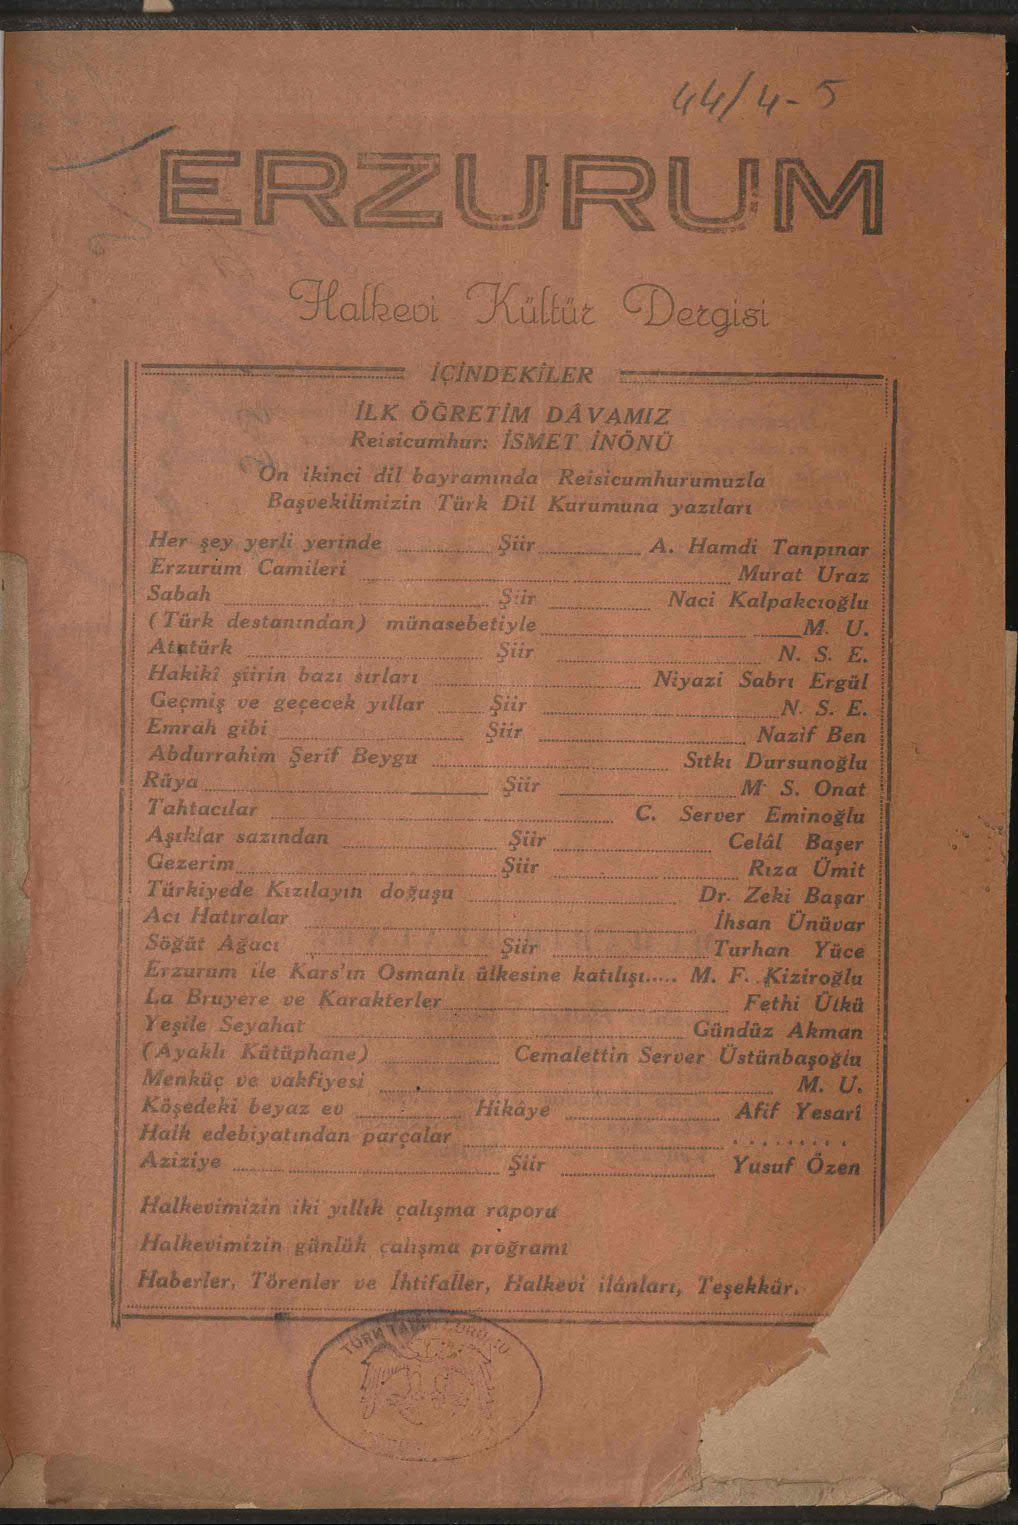 44/4-5
ERZURUM
Halkevi Kültür Dergisi
İÇİNDEKİLER
İLK ÖĞRETİM DÂVAMIZ
Reisicumhur: İSMET İNÖNÜ
On ikinci dil bayramında Reisicumhurumuzla
Başvekilimizin Türk Dil Kurumuna yazıları
Her şey yerli yerinde Şiir A. Hamdi Tanpınar
Erzurum Camileri Murat Uraz
Sabah Şiir Naci Kalpakcıoğlu
(Türk destanından) münasebetiyle M. U.
Atatürk Şiir N. S. E.
Hakikî şiirin bazı sırları Niyazi Sabrı Ergül
Geçmiş ve geçecek yıllar Şiir N. S. E.
Emrah gibi Şiir Nazif Ben
Abdurrahim Şerif Beygu Sıtkı Dursunoğlu
Rüya Şiir M. S. Onat
Tahtacılar C. Server Eminoğlu
Aşıklar sazından Şiir Celâl Başer
Gezerim Şiir Rıza Ümit
Türkiyede Kızılayın doğuşu Dr. Zeki Başar
Acı Hatıralar İhsan Ünüvar
Söğüt Ağacı Şiir Turhan Yüce
Erzurum ile Kars'ın Osmanlı ülkesine katılışı..... M. F. Kiziroğlu
La Bruyere ve Karakterler Fethi Ülkü
Yeşile Seyahat Gündüz Akman
(Ayaklı Kütüphane) Cemalettin Server Üstünbaşoğlu
Menküç ve vakfiyesi M. U.
Köşedeki beyaz ev Hikâye Afif Yesarî
Halk edebiyatından parçalar .........
Aziziye Şiir Yusuf Özen
Halkevimizin iki yıllık çalışma raporu
Halkevimizin günlük çalışma programı
Haberler, Törenler ve İhtifaller, Halkevi ilânları, Teşekkür.
TÜRK TARİH KURUMU